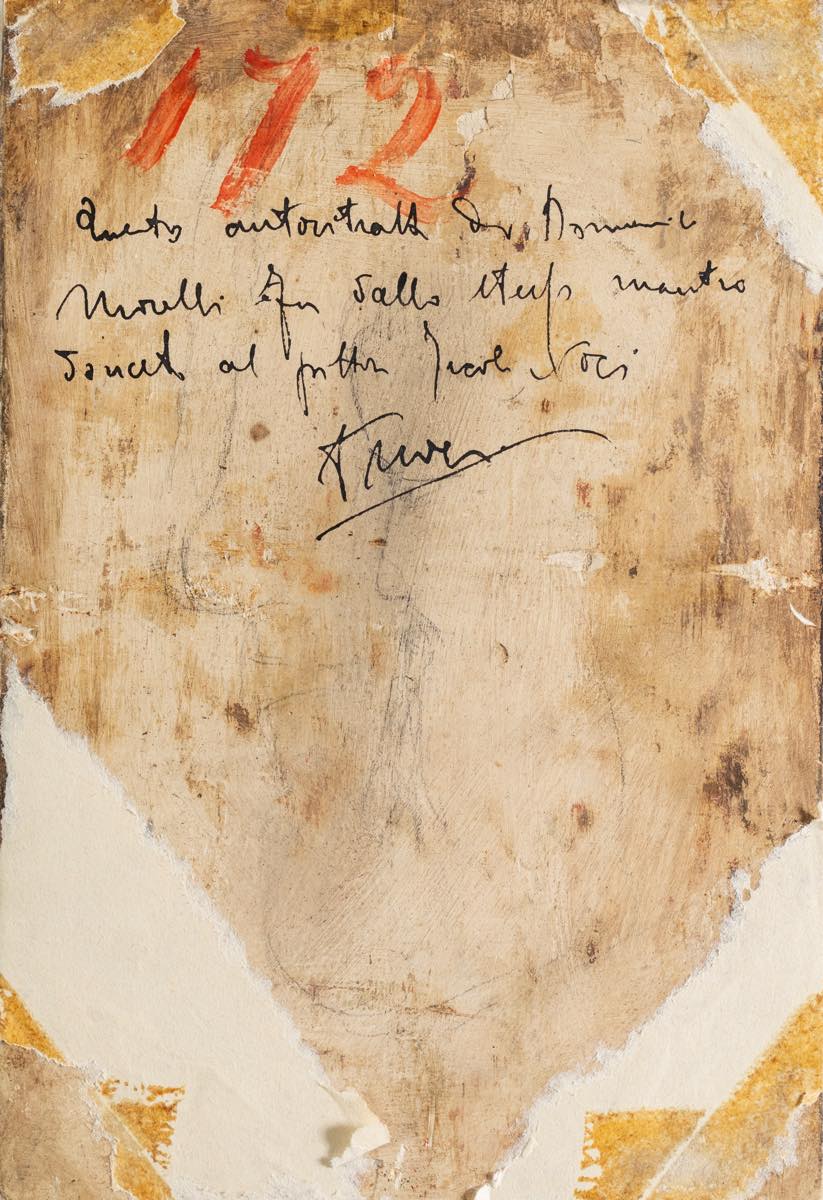 172
Questo autoritratto di Domenico
Morelli fu dallo stesso maestro
donato al pittor Nocci